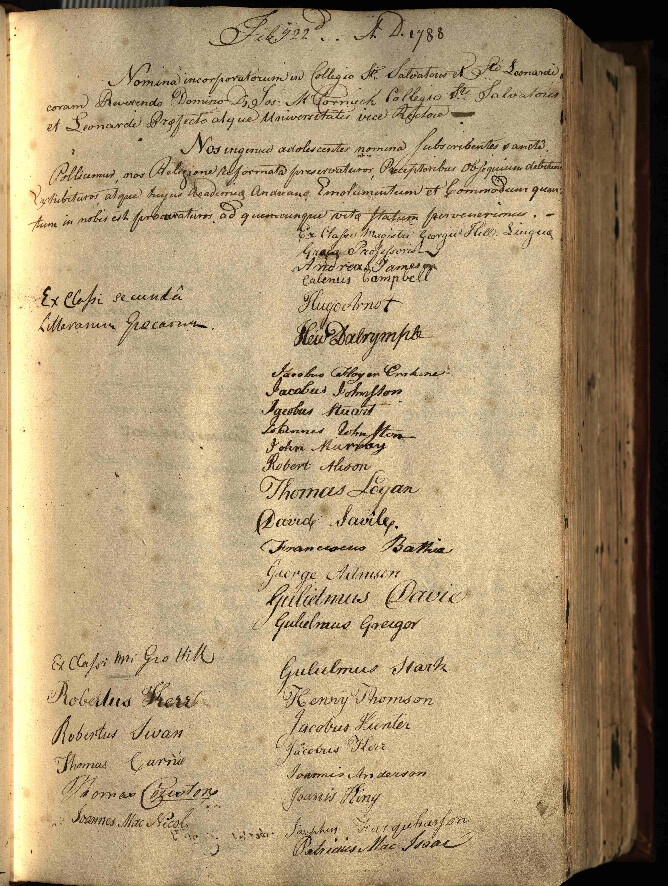 Feb'y 22d .. A. D. 1788
Nomina incorporatorum in Collegio Sti Salvatoris et Sti Leonardi
coram Reverendo Domino D. Jos. McCormick Collegii Sti Salvatoris
et Leonardi Praefecto atque Universitatis vice Rectore
Nos ingenui adolescentes nomina subscribentes sancte
Pollicemur, nos Religionem reformatam preservaturos, Praeceptoribus Obsequium debitum
exhibituros atque hujus Academiae Andreanae Emolumentum et Commodum quan-
tum in nobis est procuraturos, ad quemcunque vitae statum pervenerimus. -
Ex Classe Magistri Georgii Hill Linguae
Graecae Professoris
Andreas Jameson
Calenus Campbell
Ex Classi secundâ
Litterarum Graecarum.
Hugo Arnot
Hew Dalrymple
Jacobus Erskine
Jacobus Johnston
Jacobus Stuart
Johannes Johnston
John Murray
Robert Alison
Thomas Logan
David Savile.
Franciscus Bathie
George Adamson
Gulielmus David
Gulielmus Greigor
Ex Classi Geo Hill
Gulielmus Stark
Robertus Kerr
Henry Thomson
Robertus Swan
Jacobus Hunter
Thomas
Jacobus Kerr
Thomas
Joannis Anderson
Joannes MacNicol
Joanis King
Josephus Farquharson
Patricius Mac Isaac